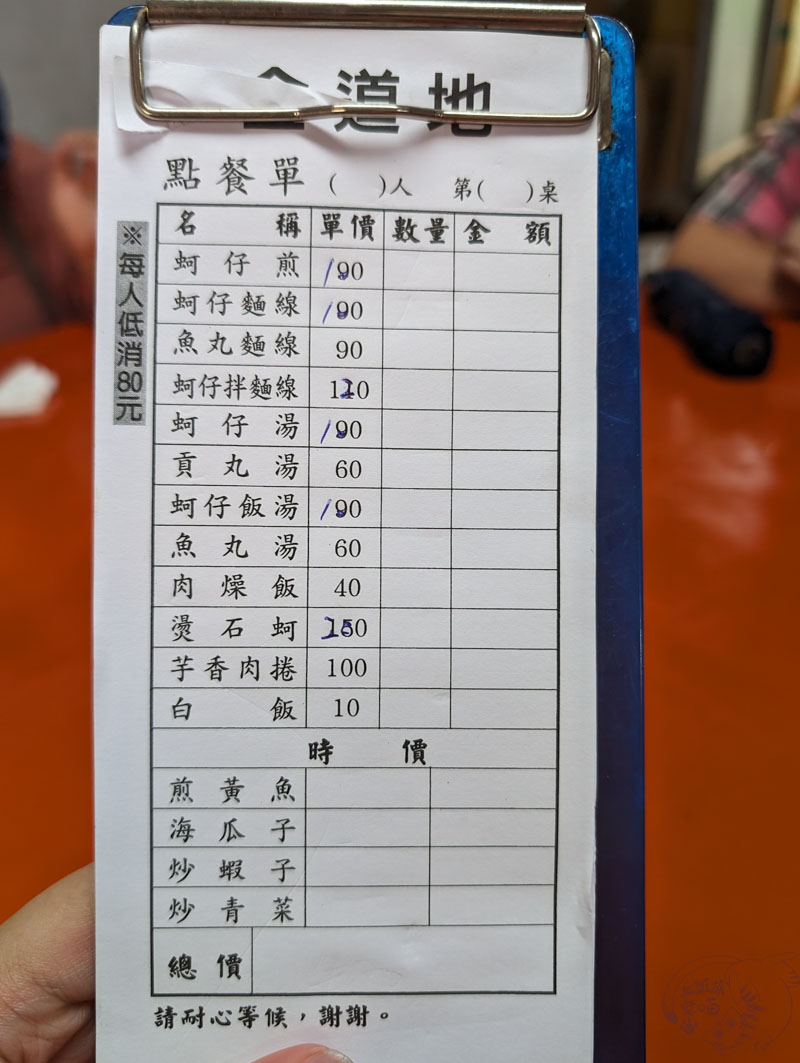 道地
點餐單 ( )人 第( )桌
※每人低消80元
名稱 單價 數量 金額
蚵仔煎 100
蚵仔麵線 100
魚丸麵線 90
蚵仔拌麵線 120
蚵仔湯 100
貢丸湯 60
蚵仔飯湯 100
魚丸湯 60
肉燥飯 40
燙石蚵 200
芋香肉捲 100
白飯 10
時價
煎黃魚
海瓜子
炒蝦子
炒青菜
總價
請耐心等候，謝謝。